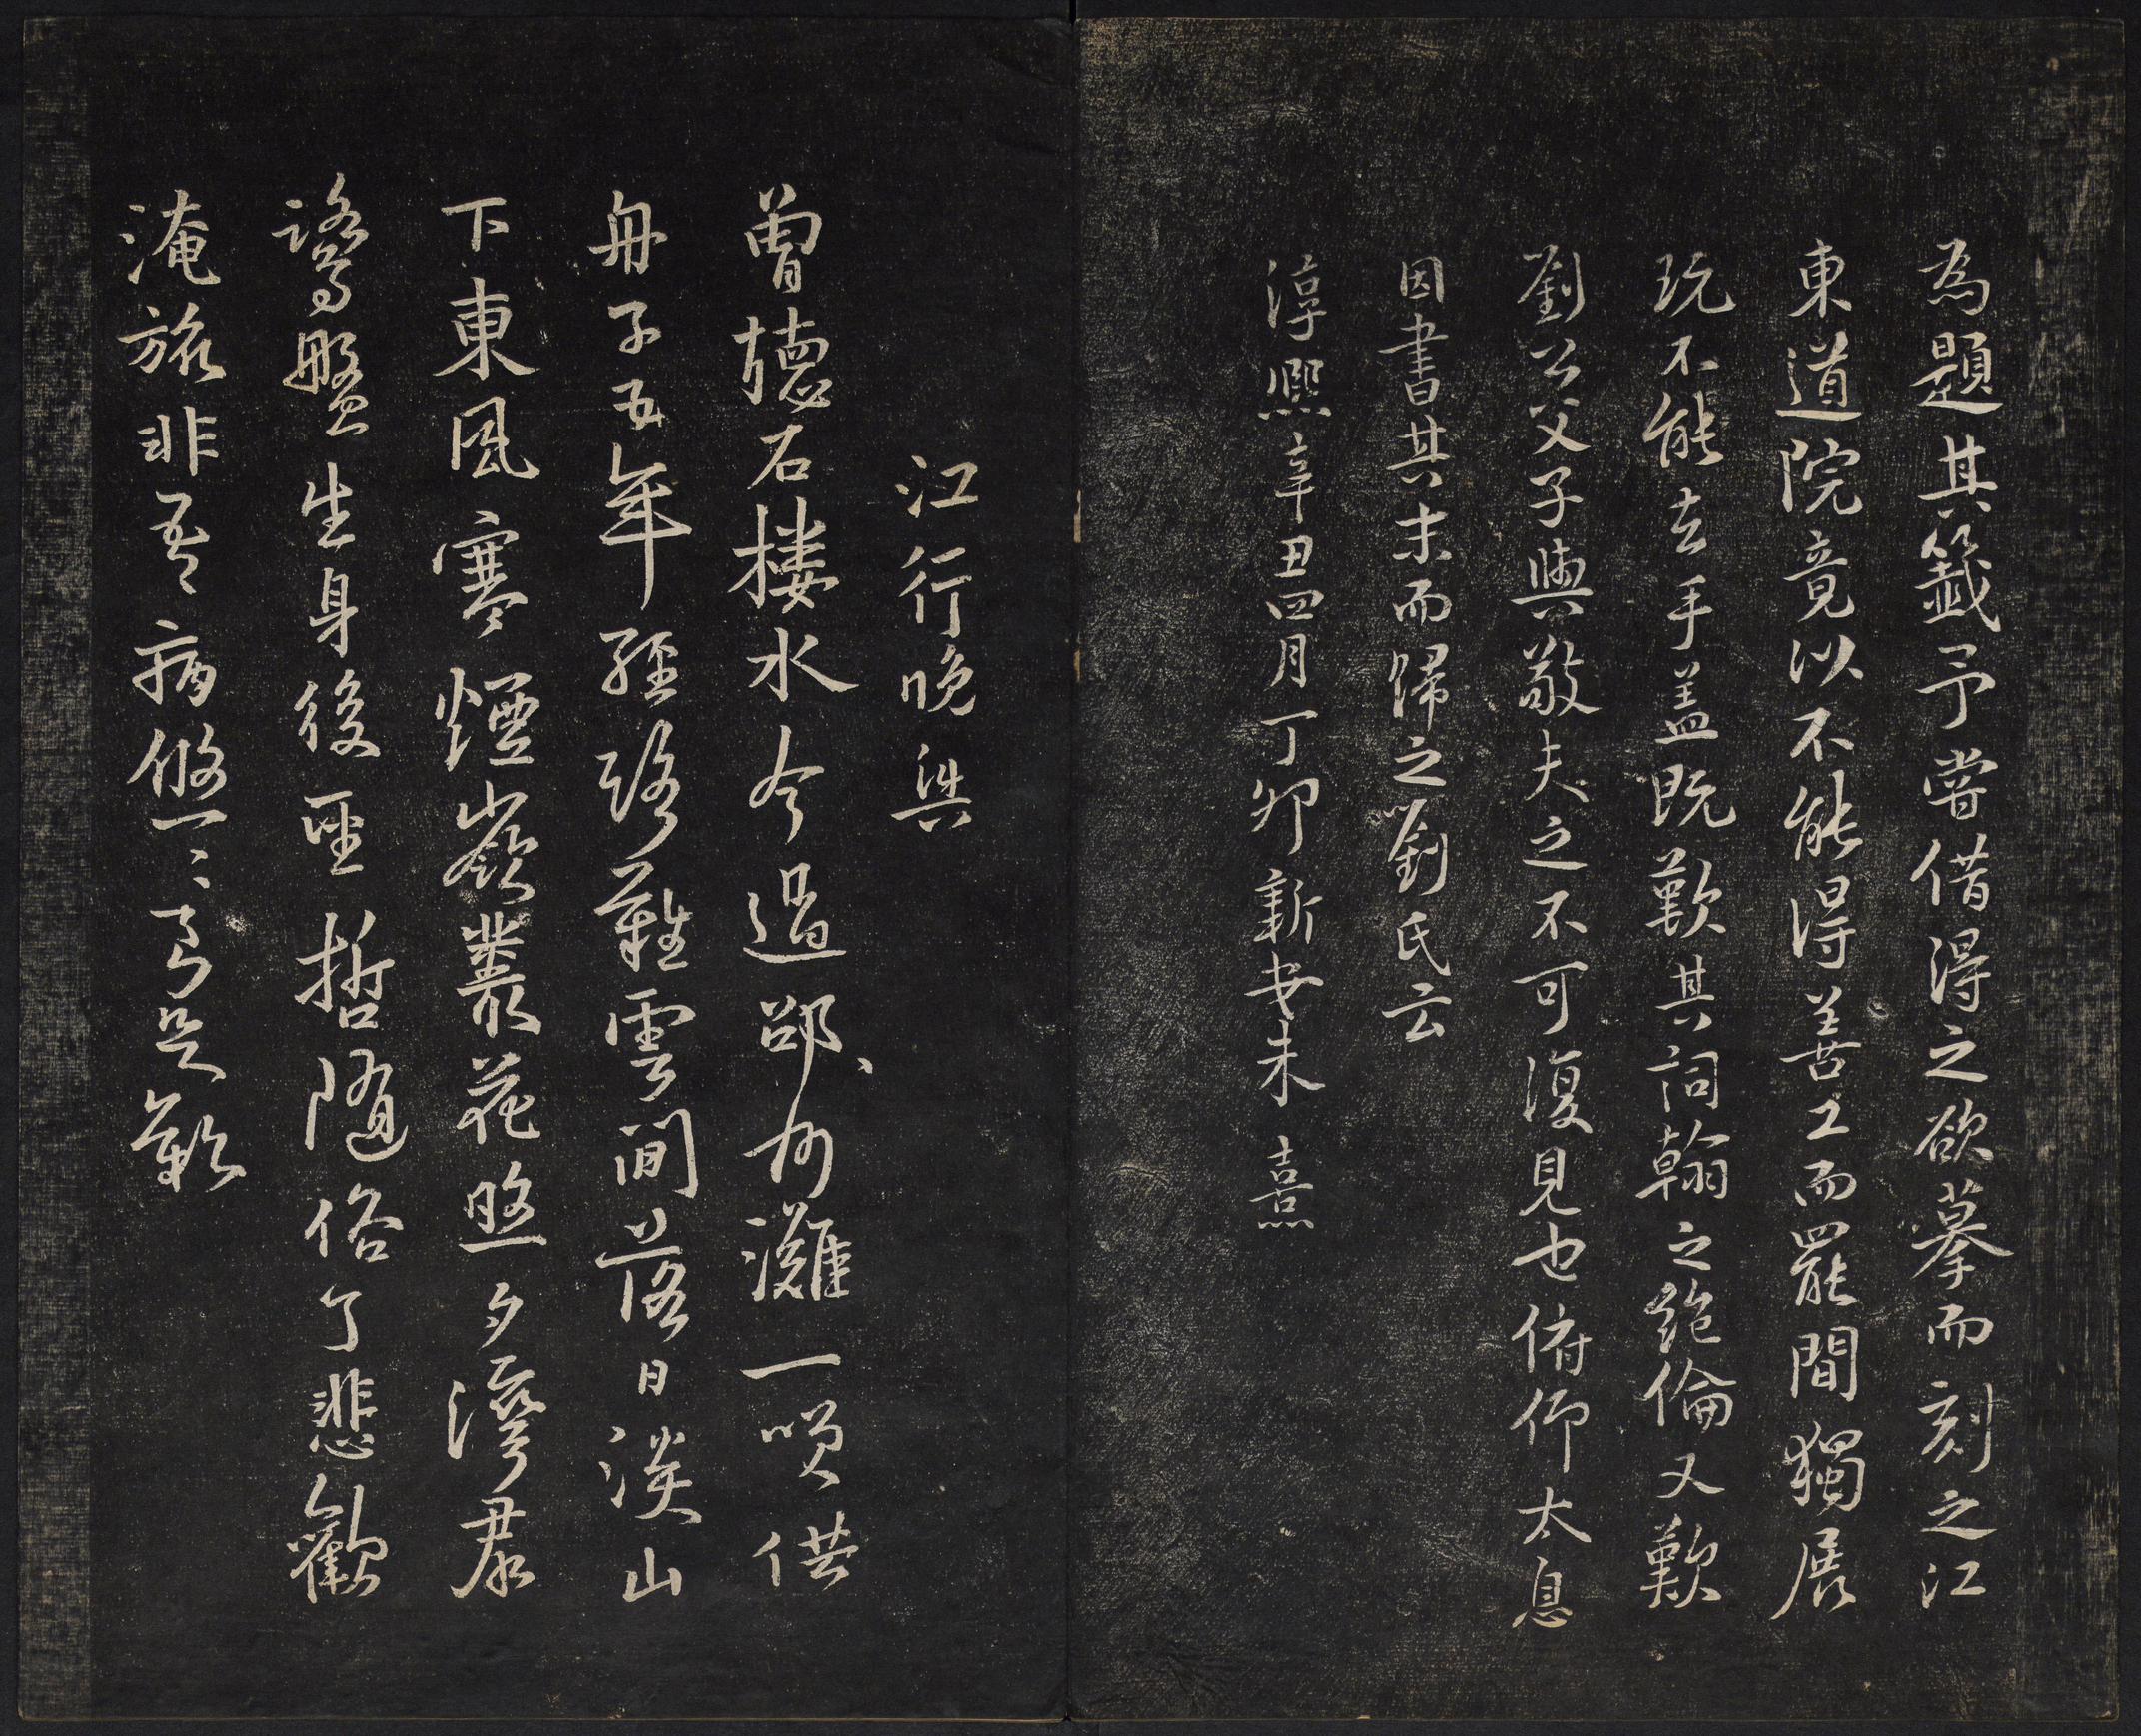 為題其籤予嘗借得之欲摹而刻之江
東道院竟以不能得善工而罷間獨展
玩不能去手盖既歎其詞翰之絕倫又歎
劉公父子與敬夫之不可復見也俯仰太息
因書其末而歸之劉氏云
淳熙辛丑四月丁卯新安朱熹
江行晚興
曾聽石樓水今過邵州灘一唉供
舟子五年經路難雲間落日淡山
下東風寒煙嶺叢花照夕灣羣
鷺盤生身後聖哲隨俗了悲歡
淹旅非吾病悠〻良足歎